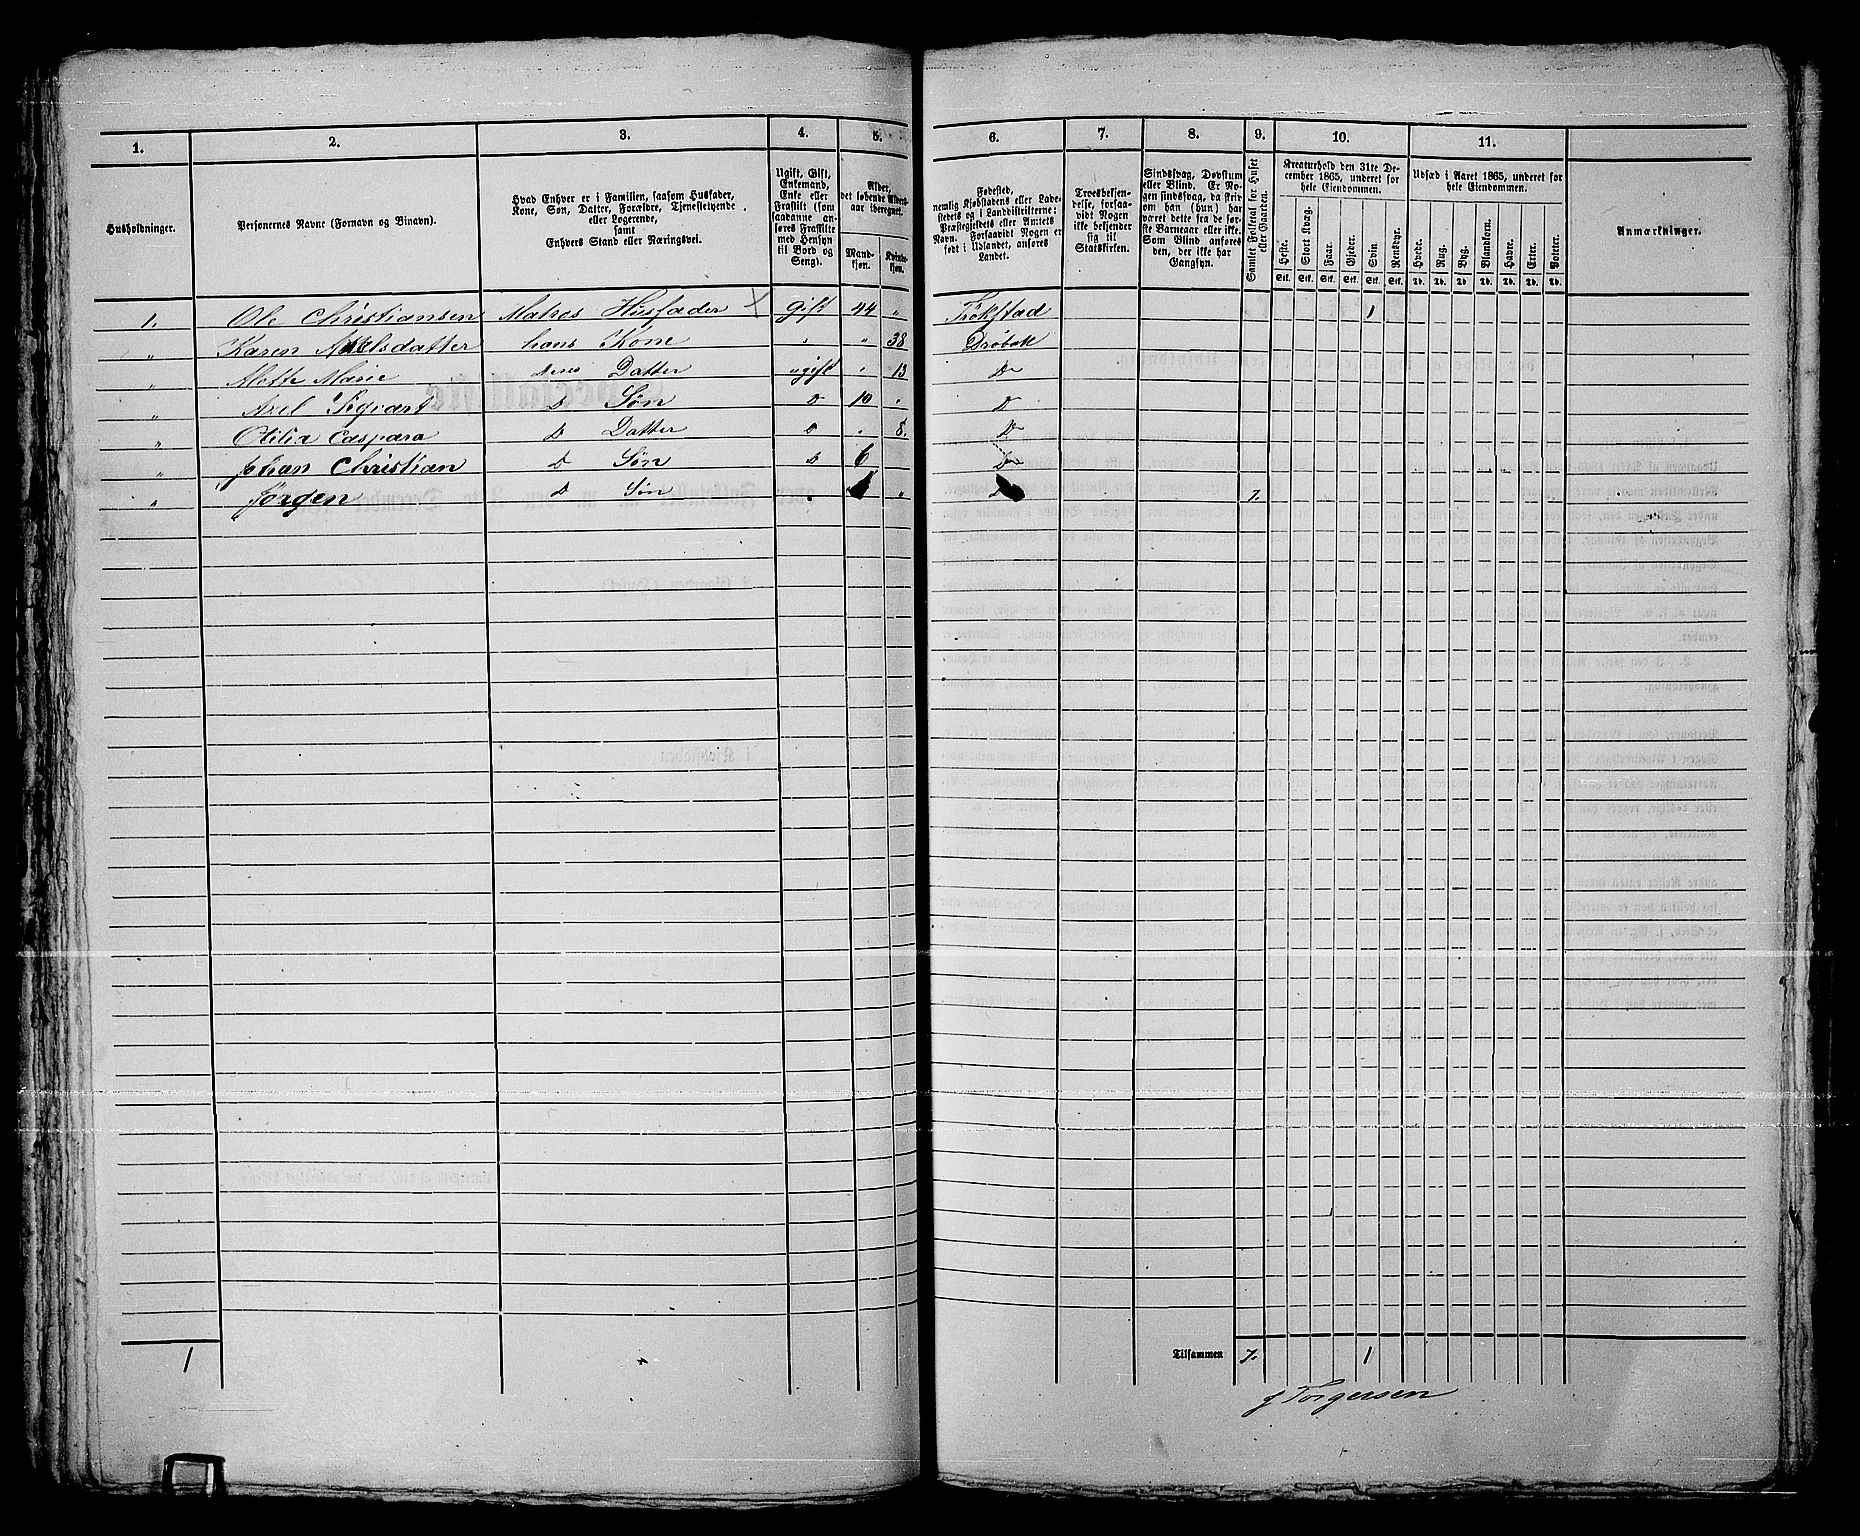 1. 2. 3. 4. 5. 6. 7. 8. 9. 10. 11.
Husholdninger.
Personernes Navne (Fornavn og Binavn).
Hvad Enhver er i Familien, saasom Husfader,
Kone, Søn, Datter, Forældre, Tjenestetyende
eller Logerende,
samt
Enhvers Stand eller Næringsvei.
Ugift, Gift,
Enkemand,
Enke eller
Fraskilt (som
saadanne an-
føres Fraskilte
med Hensyn
til Bord og
Seng).
Alder,
det løbende Alders-
aar iberegnet.
Mand-
kjøn.
Kvinde-
kjøn.
Fødested,
nemlig Kjøbstadens eller Lade-
stedets og i Landdistrikterne:
Præstegjeldets eller Amtets
Navn. Forsaavidt Nogen er
født i Udlandet, anføres
Landet.
Troesbekjen-
delse, forsaa-
vidt Nogen
ikke bekjender
sig til
Statskirken.
Sindssvag, Døvstum
eller Blind. Er No-
gen sindssvag, da skriv
om han (hun) har
været dette fra de før-
ste Barneaar eller ikke.
Som Blind anføres
den, der ikke har
Gangsyn.
Samlet Folketal for Huset
eller Gaarden.
Kreaturhold den 31te De-
cember 1865, underet for
hele Eiendommen.
Heste. Stort Kvæg. Faar. Gjeder. Svin. Rensdyr.
Stk. Stk. Stk. Stk. Stk. Stk.
Udsæd i Aaret 1865, underet for
hele Eiendommen.
Hvede. Rug. Byg. Blandkorn. Havre. Erter. Poteter.
Td. Td. Td. Td. Td. Td. Td.
Anmærkninger.
1. Ole Christiansen Matros Husfader gift 44 " Trøkstad 1
" Karen Axelsdatter hans Kone " " 38 Drøbak
" Mette Marie deres Datter ugift " 13 D
" Axel Sigvart D Søn D 10 " D
" Otilia Caspara D Datter D " 8. D
" Johan Christian D Søn D 6 D
" Jørgen D Søn " 7.
1 Tilsammen 7. 1
J Torgersen